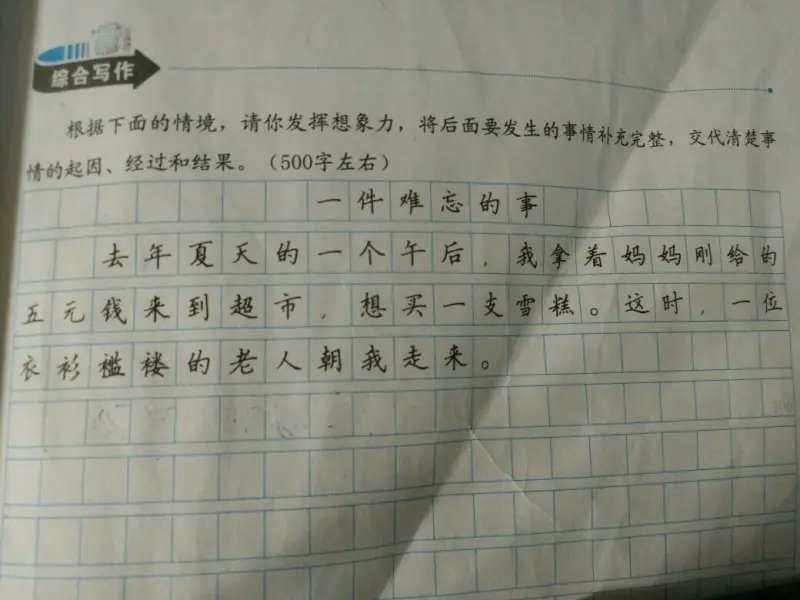 综合写作
根据下面的情境，请你发挥想象力，将后面要发生的事情补充完整，交代清楚事
情的起因、经过和结果。（500字左右）
一件难忘的事
去年夏天的一个午后，我拿着妈妈刚给的
五元钱来到超市，想买一支雪糕。这时，一位
衣衫褴褛的老人朝我走来。